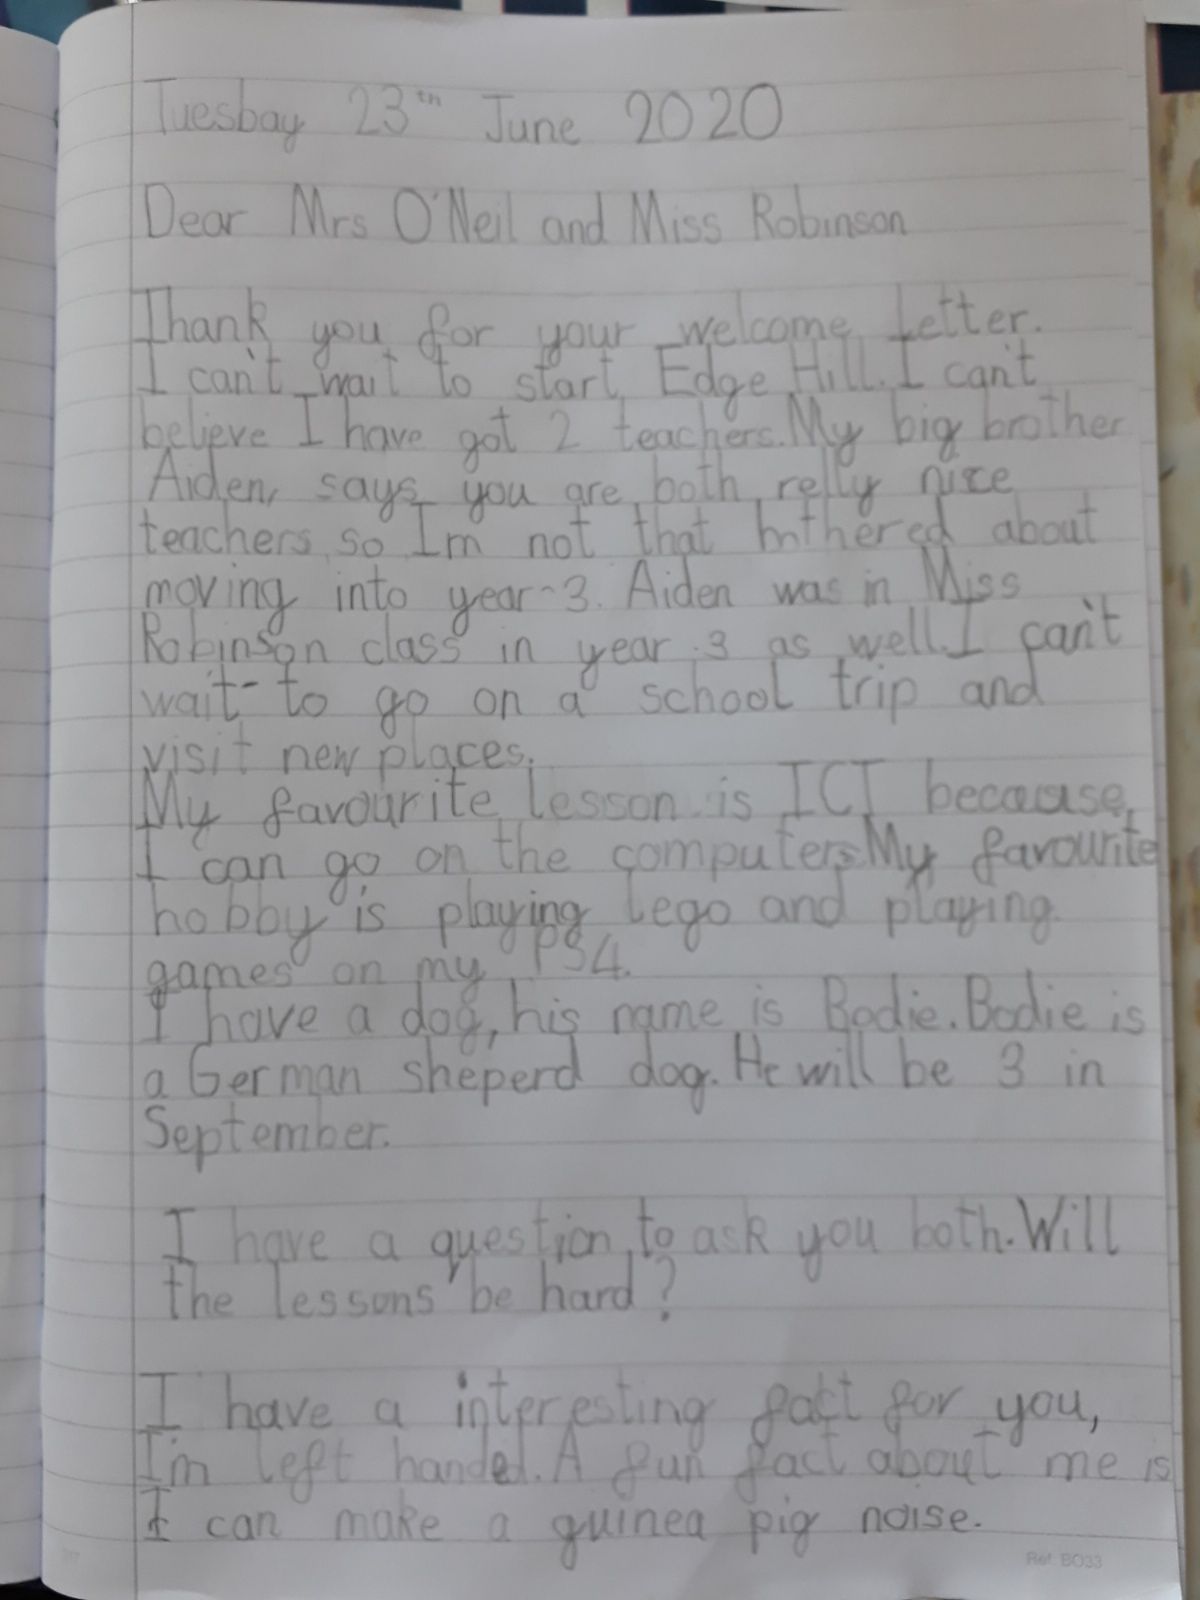 Tuesbay 23th June 2020
Dear Mrs O'Neil and Miss Robinson
Thank you for your welcome letter.
I can't wait to start Edge Hill. I can't
believe I have got 2 teachers. My big brother
Aiden, says you are both relly nice
teachers so Im not that bothered about
moving into year-3. Aiden was in Miss
Robinson class in year 3 as well. I can't
wait to go on a school trip and
visit new places.
My favourite lesson is ICT because
I can go on the computers. My favourite
hobby is playing Lego and playing
games on my PS4.
I have a dog, his name is Bodie. Bodie is
a German sheperd dog. He will be 3 in
September.
I have a question to ask you both. Will
the lessons be hard?
I have a interesting fact for you,
I'm left handed. A fun fact about me is
I can make a guinea pig noise.
Ref: BO33